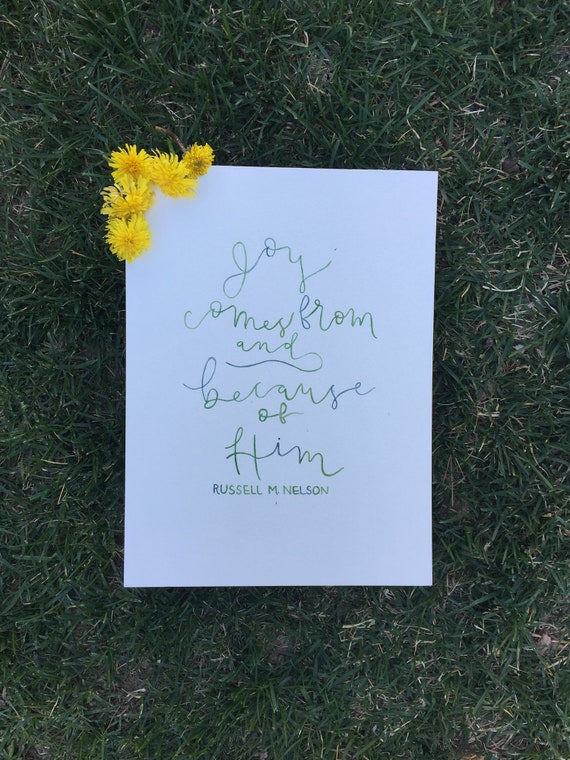 Joy
comes from
and
because
of
Him
RUSSELL M. NELSON